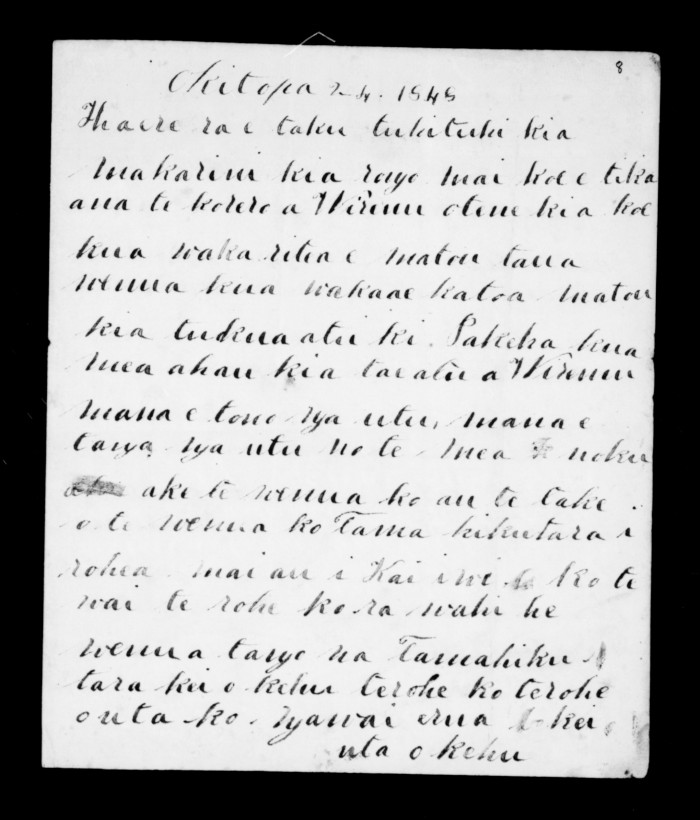 8
Okitopa 24. 1848
Haere ra e taku tukituki kia
Makarini kia rongo mai koe e tika
ana te korero a Wirimu otene kia koe
kua waka ritia e matou taua
wenua kua wakaae katoa matou
kia tukua atu ki Pakeha kua
mea ahau kia tae atu a Wirimu
mana e tono nga utu, mana e
tango nga utu no te mea noku
ake te wenua ko au te take
o te wenua ko Tama hikutara i
rohea mai au i Kai iwi ko te
wai te rohe ko ra wahi he
wenua tango na Tamahiku
tara kei o kehu te rohe ko te rohe
o uta ko Ngawai erua kei
uta o kehu